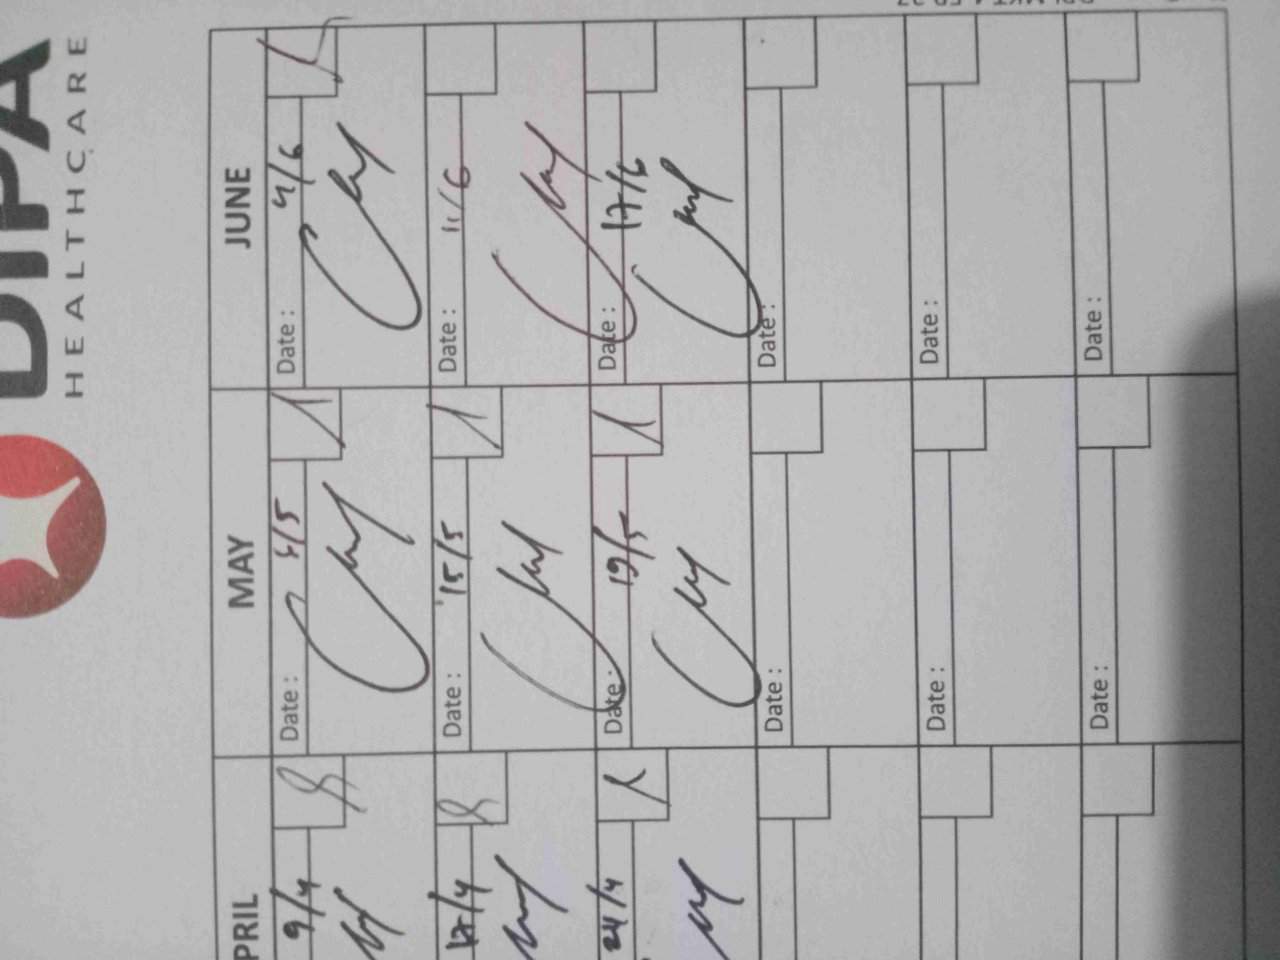 DIPA
HEALTHCARE
PRIL
MAY
JUNE
9/4
Date :
Date : 4/6
17/4
Date : 15/5
Date : 11/6
24/4
Date : 19/5
Date : 17/6
Date :
Date :
Date :
Date :
Date :
Date :